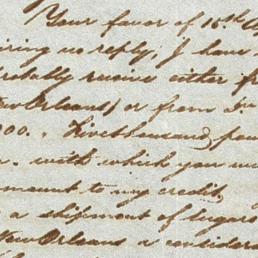 Your favor of 15th
iring no reply, I have
robably receive either fr
New Orleans) or from
000., Five thousand pou
with which you
mount to my credit,
a shipment of sugars
New Orleans a considera